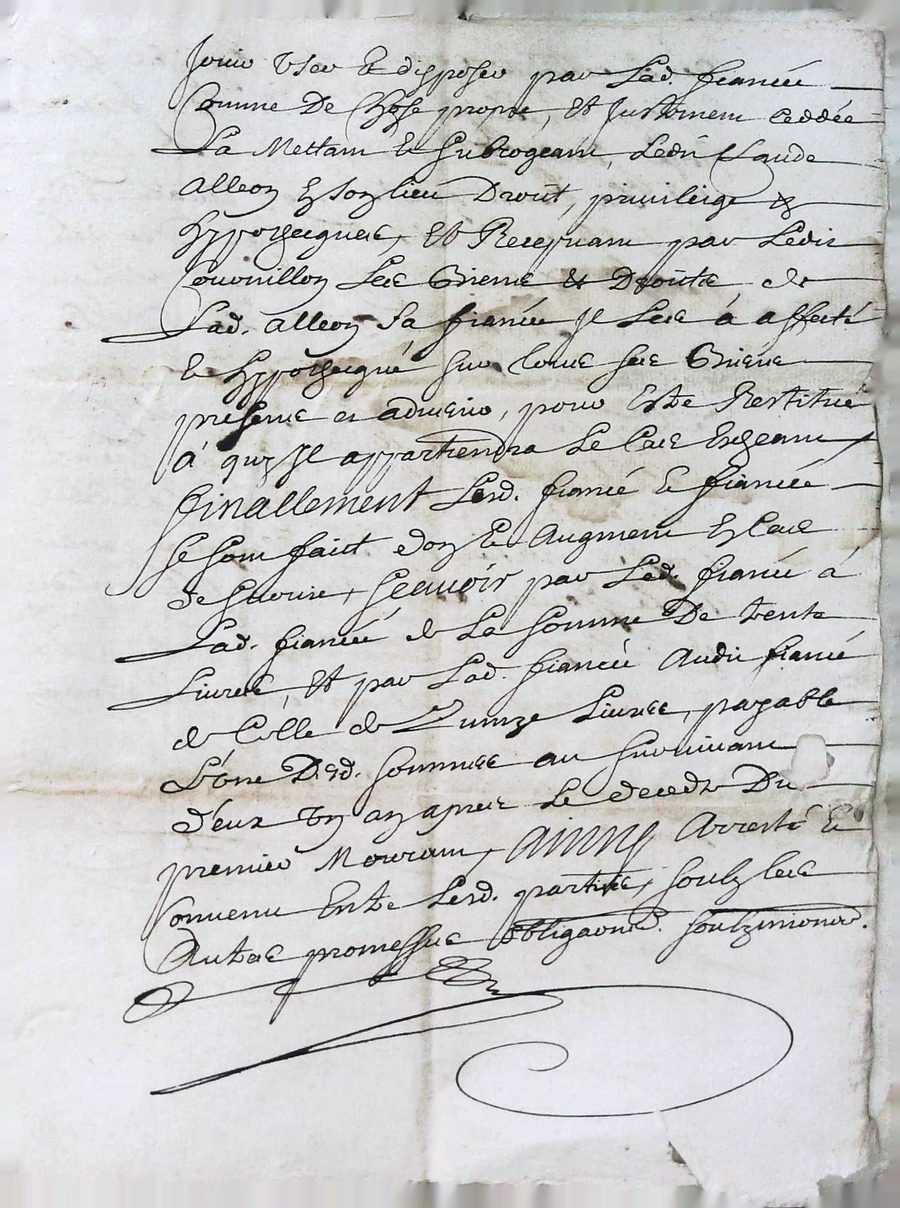 Jouir user et disposer par Lad. fiancée
Comme De Chose propre, et Justemen ceddée
La Mettant et Subrogeant, Ledit Claude
alleon En Son lieu Droit, privilege &
hypotheques, Et Recepvant par Ledit
Couvillon Les Biens & Droits de
Lad. alleon Sa fiancée Il Les a affecté
et hypothequé sur tous ses Biens
presens et advenir, pour Estre Restitué
à quy Il appartiendra Le Cas Escheant
finallement Lesd. fiancé et fiancée
se sont fait don et Augment En Cas
de survie, scavoir par Led. fiancé à
Lad. fiancée de La somme De trente
Livres, Et par Lad. fiancée Audit fiancé
de Celle de Quinze Livres, payable
L'une Desd. sommes au survivant
d'eux Un an apres Le deceds Du
premier Mourant, ainsy Arresté et
Convenu Entre Lesd. parties, soubz les
Autres promesses obligaons. soubzmissions.